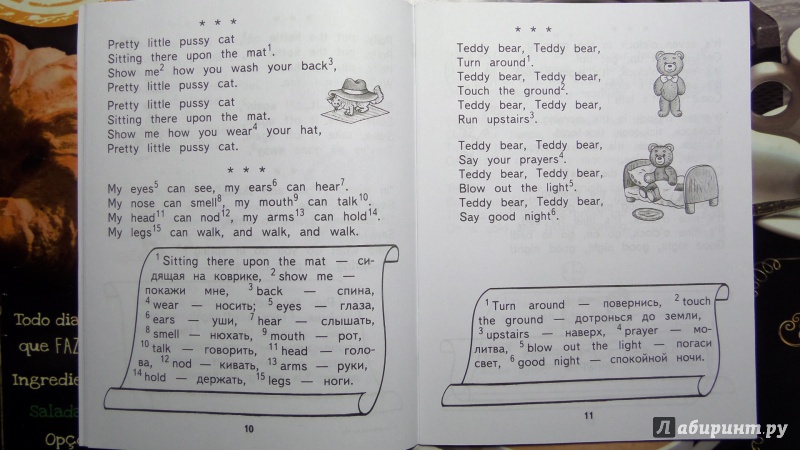 * * *
Pretty little pussy cat
Sitting there upon the mat¹.
Show me² how you wash your back³,
Pretty little pussy cat.
Pretty little pussy cat
Sitting there upon the mat.
Show me how you wear⁴ your hat,
Pretty little pussy cat.
* * *
My eyes⁵ can see, my ears⁶ can hear⁷.
My nose can smell⁸, my mouth⁹ can talk¹⁰.
My head¹¹ can nod¹², my arms¹³ can hold¹⁴.
My legs¹⁵ can walk, and walk, and walk.
¹ Sitting there upon the mat — си-
дящая на коврике, ² show me —
покажи мне, ³ back — спина,
⁴ wear — носить; ⁵ eyes — глаза,
⁶ ears — уши, ⁷ hear — слышать,
⁸ smell — нюхать, ⁹ mouth — рот,
¹⁰ talk — говорить, ¹¹ head — голо-
ва, ¹² nod — кивать, ¹³ arms — руки,
¹⁴ hold — держать, ¹⁵ legs — ноги.
10
* * *
Teddy bear, Teddy bear,
Turn around¹.
Teddy bear, Teddy bear,
Touch the ground².
Teddy bear, Teddy bear,
Run upstairs³.
Teddy bear, Teddy bear,
Say your prayers⁴.
Teddy bear, Teddy bear,
Blow out the light⁵.
Teddy bear, Teddy bear,
Say good night⁶.
¹ Turn around — повернись, ² touch
the ground — дотронься до земли,
³ upstairs — наверх, ⁴ prayer — мо-
литва, ⁵ blow out the light — погаси
свет, ⁶ good night — спокойной ночи.
11
Todo dia
que FAZ
Ingredie
Salada
Opçõ
Лабиринт.ру